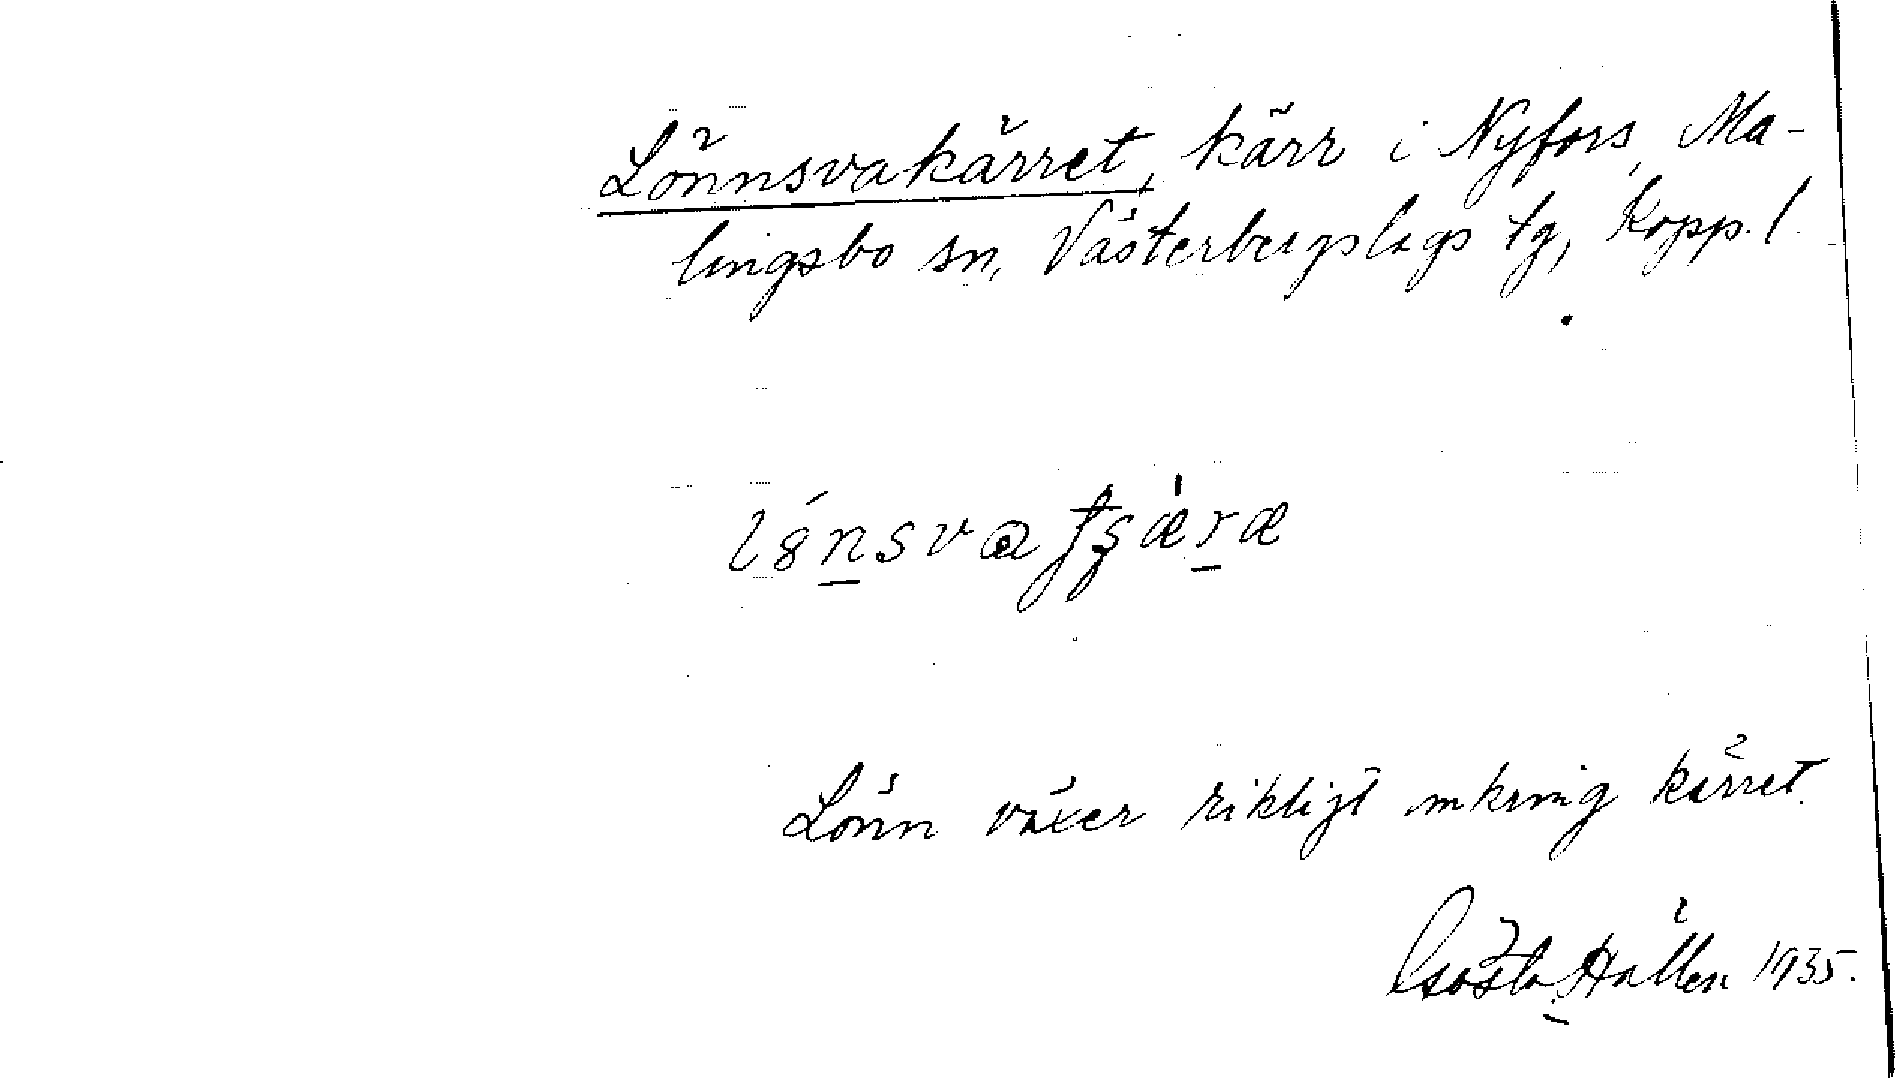 Lönnsvakärret, kärr i Nyfors, Ma-
lingsbo sn, Västerbergslags tg, Kopp. l.
Lönn växer rikligt omkring kärret.
Gösta Hallén 1935.